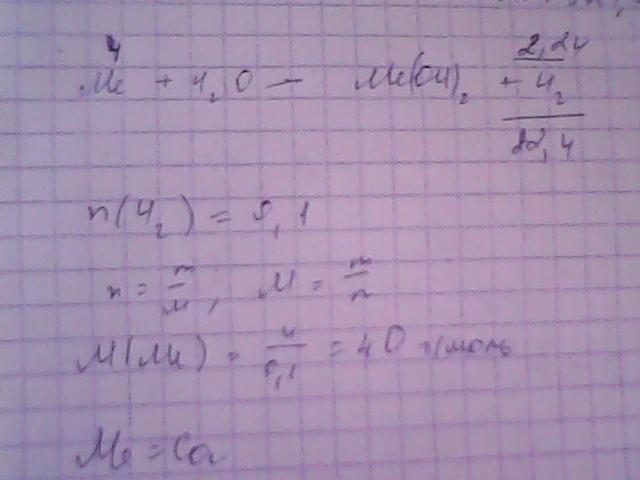 4 2,24
Me + H₂O — Me(OH)₂ + H₂
22,4
n(H₂) = 0,1
n = m/M; M = m/n
M(Me) = 4/0,1 = 40 г/моль
Me = Ca